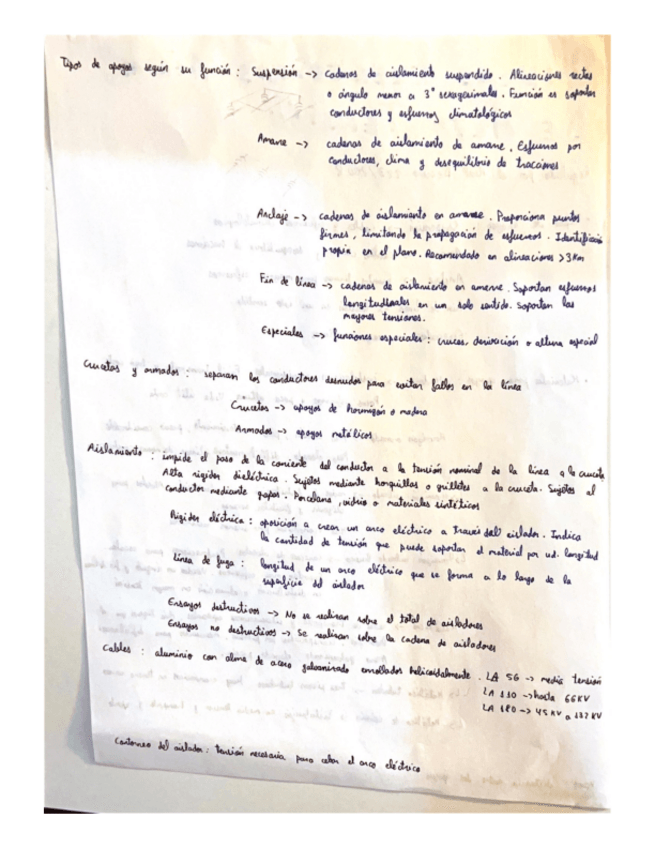 Tipos de apoyos según su función : Suspensión -> cadenas de aislamiento suspendido. Alineaciones rectas
o ángulo menor a 3° sexagesimales. Función es soportar
conductores y esfuerzos climatológicos
Amarre -> cadenas de aislamiento de amarre. Esfuerzos por
conductores, clima y desequilibrio de tracciones
Anclaje -> cadenas de aislamiento en amarre. Proporciona puntos
firmes, limitando la propagación de esfuerzos. Identificación
propia en el plano. Recomendado en alineaciones >3Km
Fin de línea -> cadenas de aislamiento en amarre. Soportan esfuerzos
longitudinales en un solo sentido. Soportan las
mayores tensiones.
Especiales -> funciones especiales : cruces, derivación o altura especial
Crucetas y armados : separan los conductores desnudos para evitar fallos en la línea
Crucetas -> apoyos de hormigón o madera
Armados -> apoyos metálicos
Aislamiento : impide el paso de la corriente del conductor a la tensión nominal de la línea a la cruceta
Alta rigidez dieléctrica. Sujetos mediante horquillas o grilletes a la cruceta. Sujetos al
conductor mediante grapas. Porcelana, vidrio o materiales sintéticos
Rigidez eléctrica : oposición a crear un arco eléctrico a través del aislador. Indica
la cantidad de tensión que puede soportar el material por ud. longitud
Línea de fuga : longitud de un arco eléctrico que se forma a lo largo de la
superficie del aislador
Ensayos destructivos -> No se realizan sobre el total de aisladores
Ensayos no destructivos -> Se realizan sobre la cadena de aisladores
Cables : aluminio con alma de acero galvanizado enrollados helicoidalmente. LA 56 -> media tensión
LA 110 -> hasta 66KV
LA 180 -> 45 KV a 132 KV
Contorneo del aislador : tensión necesaria para cebar el arco eléctrico